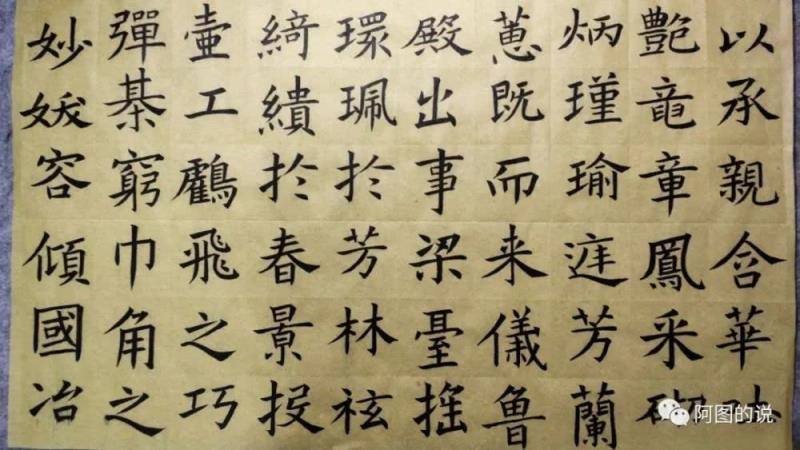 以承親含華吐
艷竜章鳳采砌
炳瑾瑜庭芳蘭
蕙既而来儀魯
殿出事梁臺搖
環珮於芳林袨
綺繢於春景投
壺工鸖飛之巧
彈棊窮巾角之
妙妖容傾國冶
阿图的说